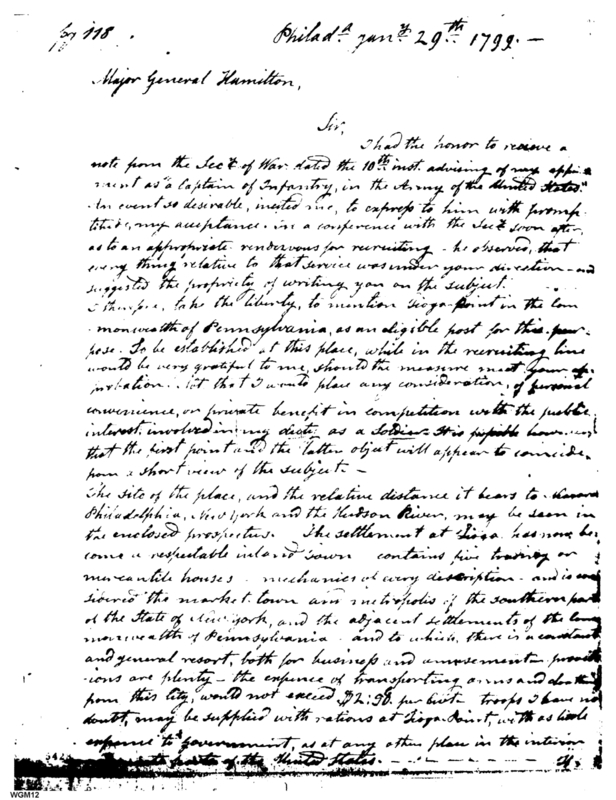 Philad.a Jan.y 29.th 1799. —
Major General Hamilton,
Sir,
I had the honor to recieve a
note from the Sect. of War dated the 10th inst. advising of my appoint
ment as "a Captain of Infantry, in the Army of the United States."
An event so desirable, incited me, to express to him with promp
titude, my acceptance. in a conference with the Sect. soon after,
as to an appropriate rendezvous for recruiting - he observed, that
every thing relative to that service was under your direction - and
suggested the propriety of writing you on the subject.
I therefore, take the liberty, to mention Tioga-Point in the com
monwealth of Pennsylvania, as an eligible post for this pur
pose. To be established at this place, while in the recruiting line
would be very grateful to me, should the measure meet your ap
probation. Not that I would place any consideration, of personal
convenience, or private benefit in competition with the public
interest involved in my duty as a Soldier. It is
that the first point and the latter object will appear to coincide,
from a short view of the subject. —
The site of the place, and the relative distance it bears to
Philadelphia, New York and the Hudson River, may be seen in
the enclosed prospectus. The settlement at Tioga has now be
come a respectable inland town contains five trading or
mercantile houses - mechanics of every description - and is con
sidered the market town and metropolis of the southern part
of the State of New york, and the adjacent settlements of the Com
monwealth of Pennsylvania - and to which, there is a constant
and general resort, both for business and amusement - provis
ions are plenty - the expence of transporting arms and
from this City, would not exceed $2:90. per troops I have no
doubt, may be supplied with rations at Tioga Point, with as little
expence to government, as at any other place in the interior
parts of the United States.
WGM12